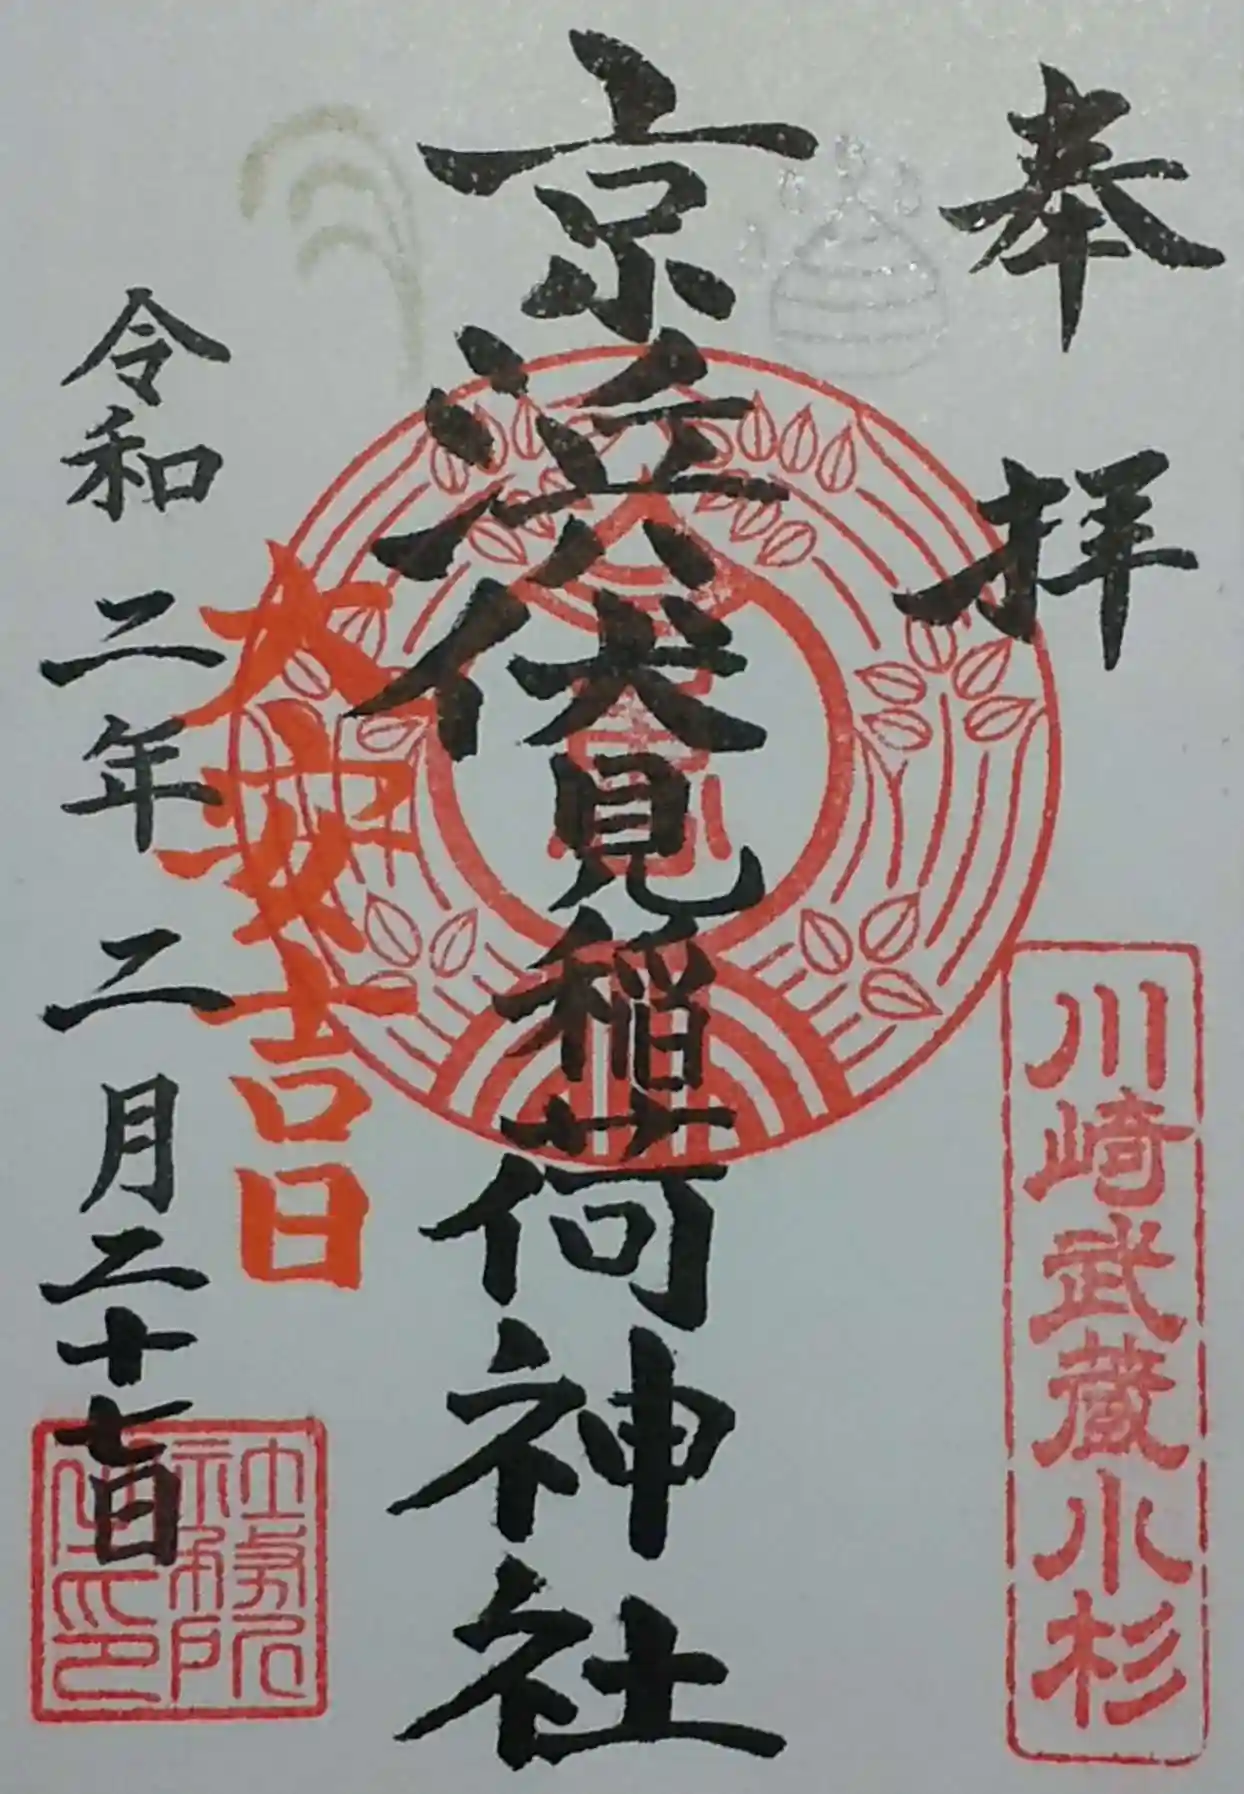 奉拝
川崎武蔵小杉
京浜伏見稲荷神社
大安吉日
令和二年二月二十七日
社務所
之印